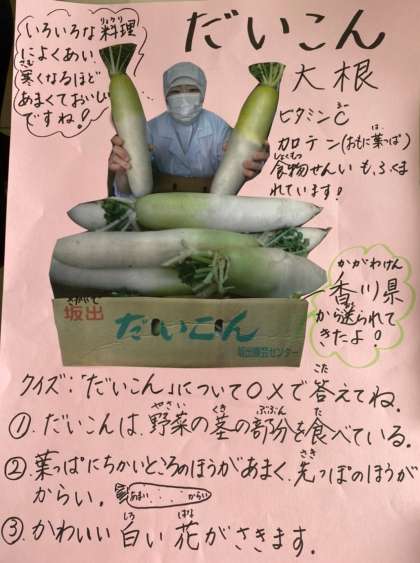 いろいろな料理
によくあい、
寒くなるほど
あまくておいしい
ですね!
だいこん
大根
ビタミンC
カロテン(おもに葉っぱ)
食物せんいも、ふくま
れています!
かがわけん
香川県
から送られて
きたよ!
さかいで
坂出
だいこん
坂出園芸センター
クイズ:「だいこん」について○×で答えてね。
①.だいこんは、野菜の茎の部分を食べている。
②.葉っぱにちかいところのほうがあまく、先っぽのほうが
からい。
あまい からい
③.かわいい白い花がさきます。